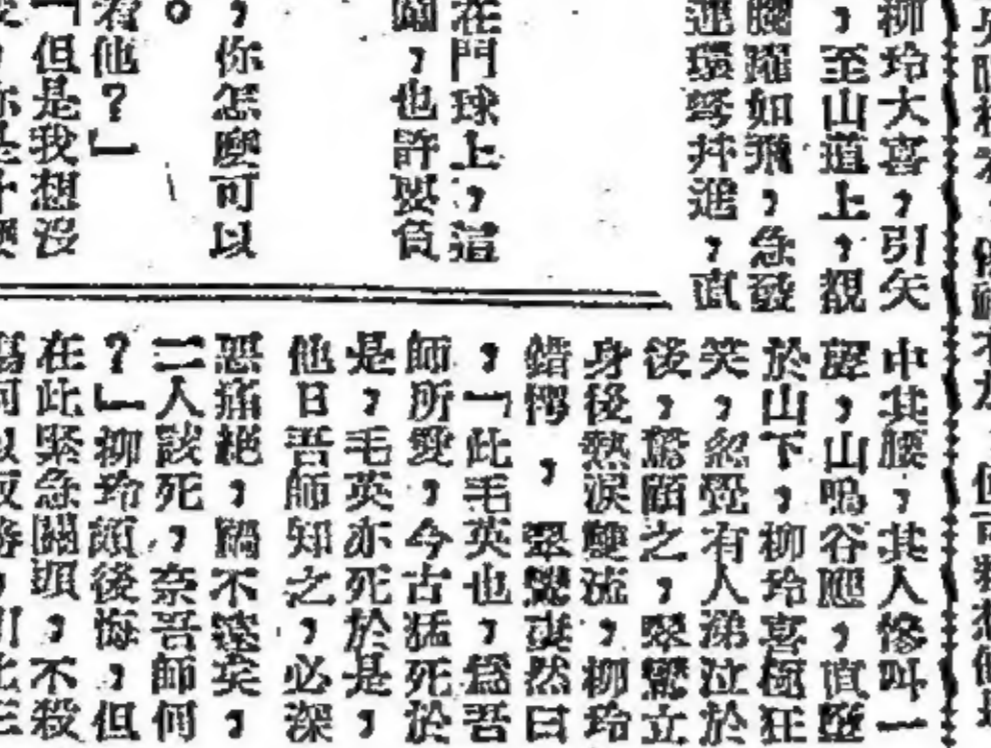 柳玲大喜，引矢
，至山道上，覩
騰躍如飛，急發
連環弩并進，直
在門球上，這
，也許要負
，你怎麼可以
。
他？」
「但是我想沒
中其腰，其人慘叫一
聲，山鳴谷應，直墜
於山下，柳玲喜極狂
笑，忽覺有人涕泣於
後，驚顧之，翠鸞立
身後熱淚雙流，柳玲
錯愕，翠鸞悽然曰
，「此毛英也，爲吾
師所愛，今古猛死於
是，毛英亦死於是，
他日吾師知之，必深
惡痛絕，禍不遠矣，
二人該死，奈吾師何
？」柳玲頗後悔，但
在此緊急關頭，不殺